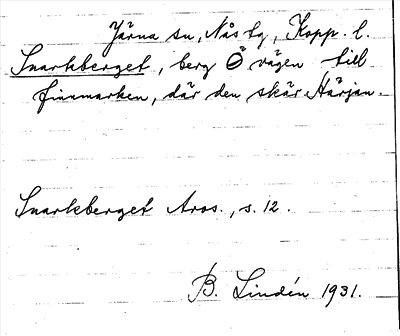 Järna sn, Nås tg, Kopp. l.
Snarkberget, berg Ö vägen till
finnmarken, där den skär Härjan.
Snarkberget Aros., s. 12.
B. Lindén 1931.